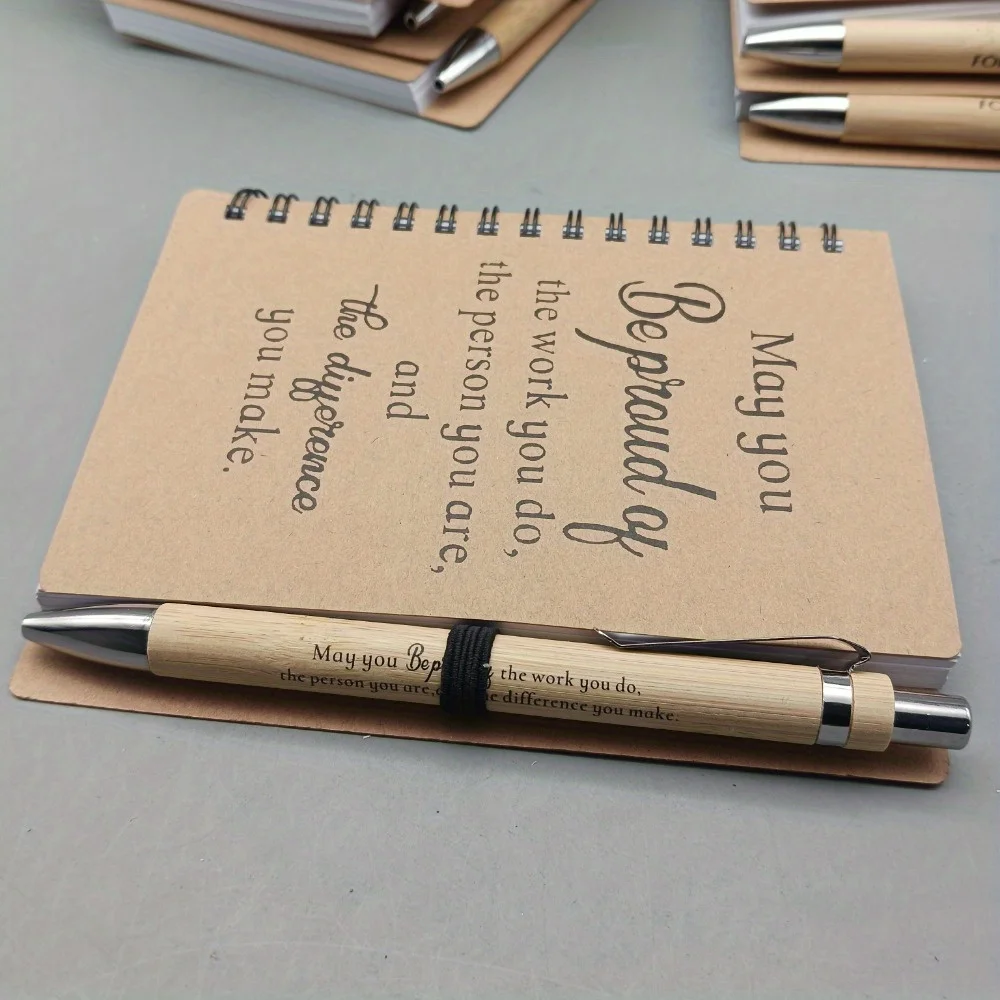 May you
Be proud of
the work you do,
the person you are,
and
the difference
you make.
May you Be p the work you do,
the person you are, difference you make.